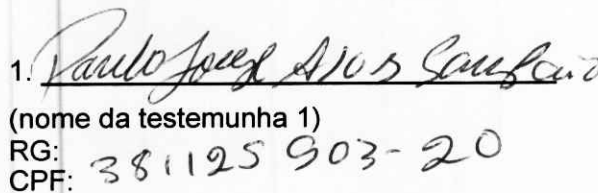 1. Paulo Jorge
(nome da testemunha 1)
RG:
CPF: 381125903-20